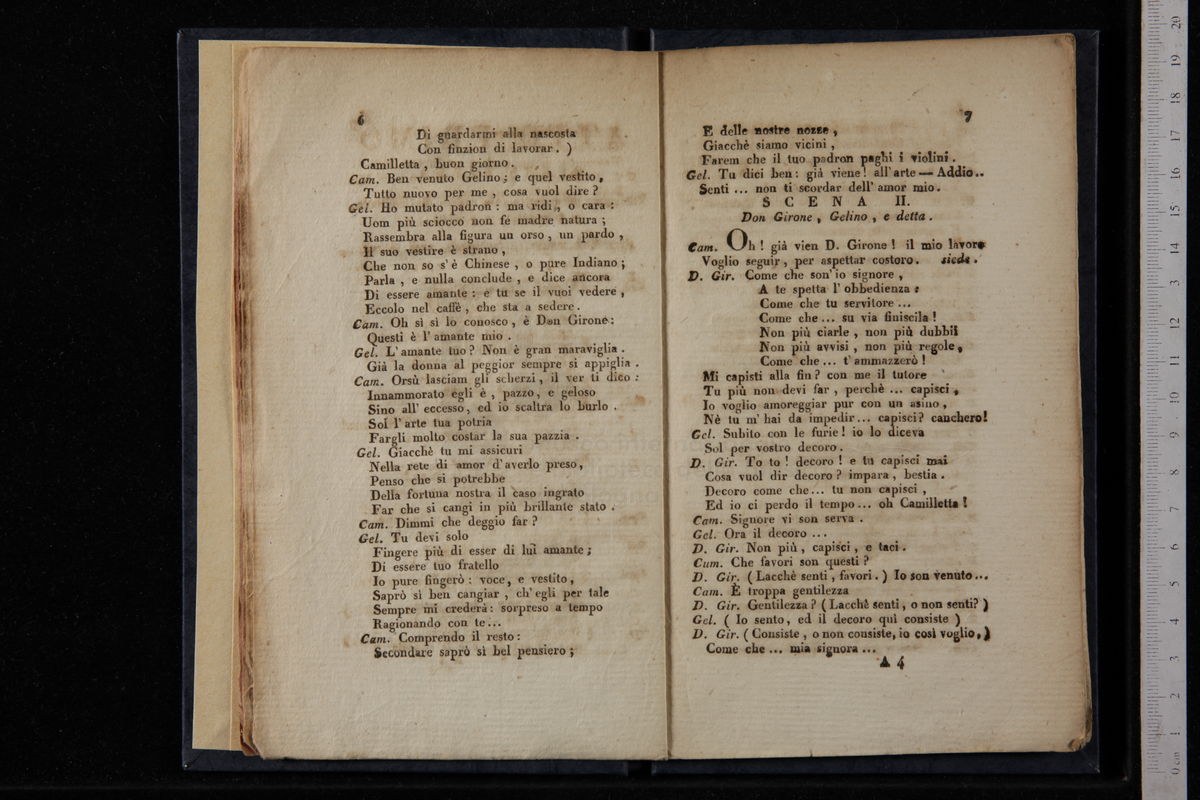 6
Di guardarmi alla nascosta
Con finzion di lavorar. )
Camilletta, buon giorno.
Cam. Ben venuto Gelino; e quel vestito,
Tutto nuovo per me, cosa vuol dire?
Gel. Ho mutato padron: ma ridi, o cara:
Uom più sciocco non fe madre natura;
Rassembra alla figura un orso, un pardo,
Il suo vestire è strano,
Che non so s'è Chinese, o pure Indiano;
Parla, e nulla conclude, e dice ancora
Di essere amante: e tu se il vuoi vedere,
Eccolo nel caffè, che sta a sedere.
Cam. Oh sì sì lo conosco, è Don Girone:
Questi è l'amante mio.
Gel. L'amante tuo? Non è gran maraviglia.
Già la donna al peggior sempre si appiglia.
Cam. Orsù lasciam gli scherzi, il ver ti dico:
Innammorato egli è, pazzo, e geloso
Sino all'eccesso, ed io scaltra lo burlo.
Sol l'arte tua potria
Fargli molto costar la sua pazzia.
Gel. Giacchè tu mi assicuri
Nella rete di amor d'averlo preso,
Penso che si potrebbe
Della fortuna nostra il caso ingrato
Far che si cangi in più brillante stato.
Cam. Dimmi che deggio far?
Gel. Tu devi solo
Fingere più di esser di lui amante;
Di essere tuo fratello
Io pure fingerò: voce, e vestito,
Saprò sì ben cangiar, ch'egli per tale
Sempre mi crederà: sorpreso a tempo
Ragionando con te...
Cam. Comprendo il resto:
Secondare saprò sì bel pensiero;
7
E delle nostre nozze,
Giacchè siamo vicini,
Farem che il tuo padron paghi i violini.
Gel. Tu dici ben: già viene! all'arte — Addio..
Senti ... non ti scordar dell'amor mio.
SCENA II.
Don Girone, Gelino, e detta.
Cam. Oh! già vien D. Girone! il mio lavoro
Voglio seguir, per aspettar costoro. siede.
D. Gir. Come che son'io signore,
A te spetta l'obbedienza:
Come che tu servitore ...
Come che ... su via finiscila!
Non più ciarle, non più dubbii
Non più avvisi, non più regole,
Come che ... t'ammazzerò!
Mi capisti alla fin? con me il tutore
Tu più non devi far, perchè ... capisci,
Io voglio amoreggiar pur con un asino,
Nè tu m'hai da impedir... capisci? canchero!
Gel. Subito con le furie! io lo diceva
Sol per vostro decoro.
D. Gir. To to! decoro! e tu capisci mai
Cosa vuol dir decoro? impara, bestia.
Decoro come che... tu non capisci,
Ed io ci perdo il tempo... oh Camilletta!
Cam. Signore vi son serva.
Gel. Ora il decoro ...
D. Gir. Non più, capisci, e taci.
Cum. Che favori son questi?
D. Gir. (Lacchè senti, favori.) Io son venuto...
Cam. È troppa gentilezza
D. Gir. Gentilezza? (Lacchè senti, o non senti?)
Gel. (Io sento, ed il decoro qui consiste)
D. Gir. (Consiste, o non consiste, io così voglio,)
Come che ... mia signora ...
A 4
0 cm 1 2 3 4 5 6 7 8 9 10 11 12 13 14 15 16 17 18 19 20